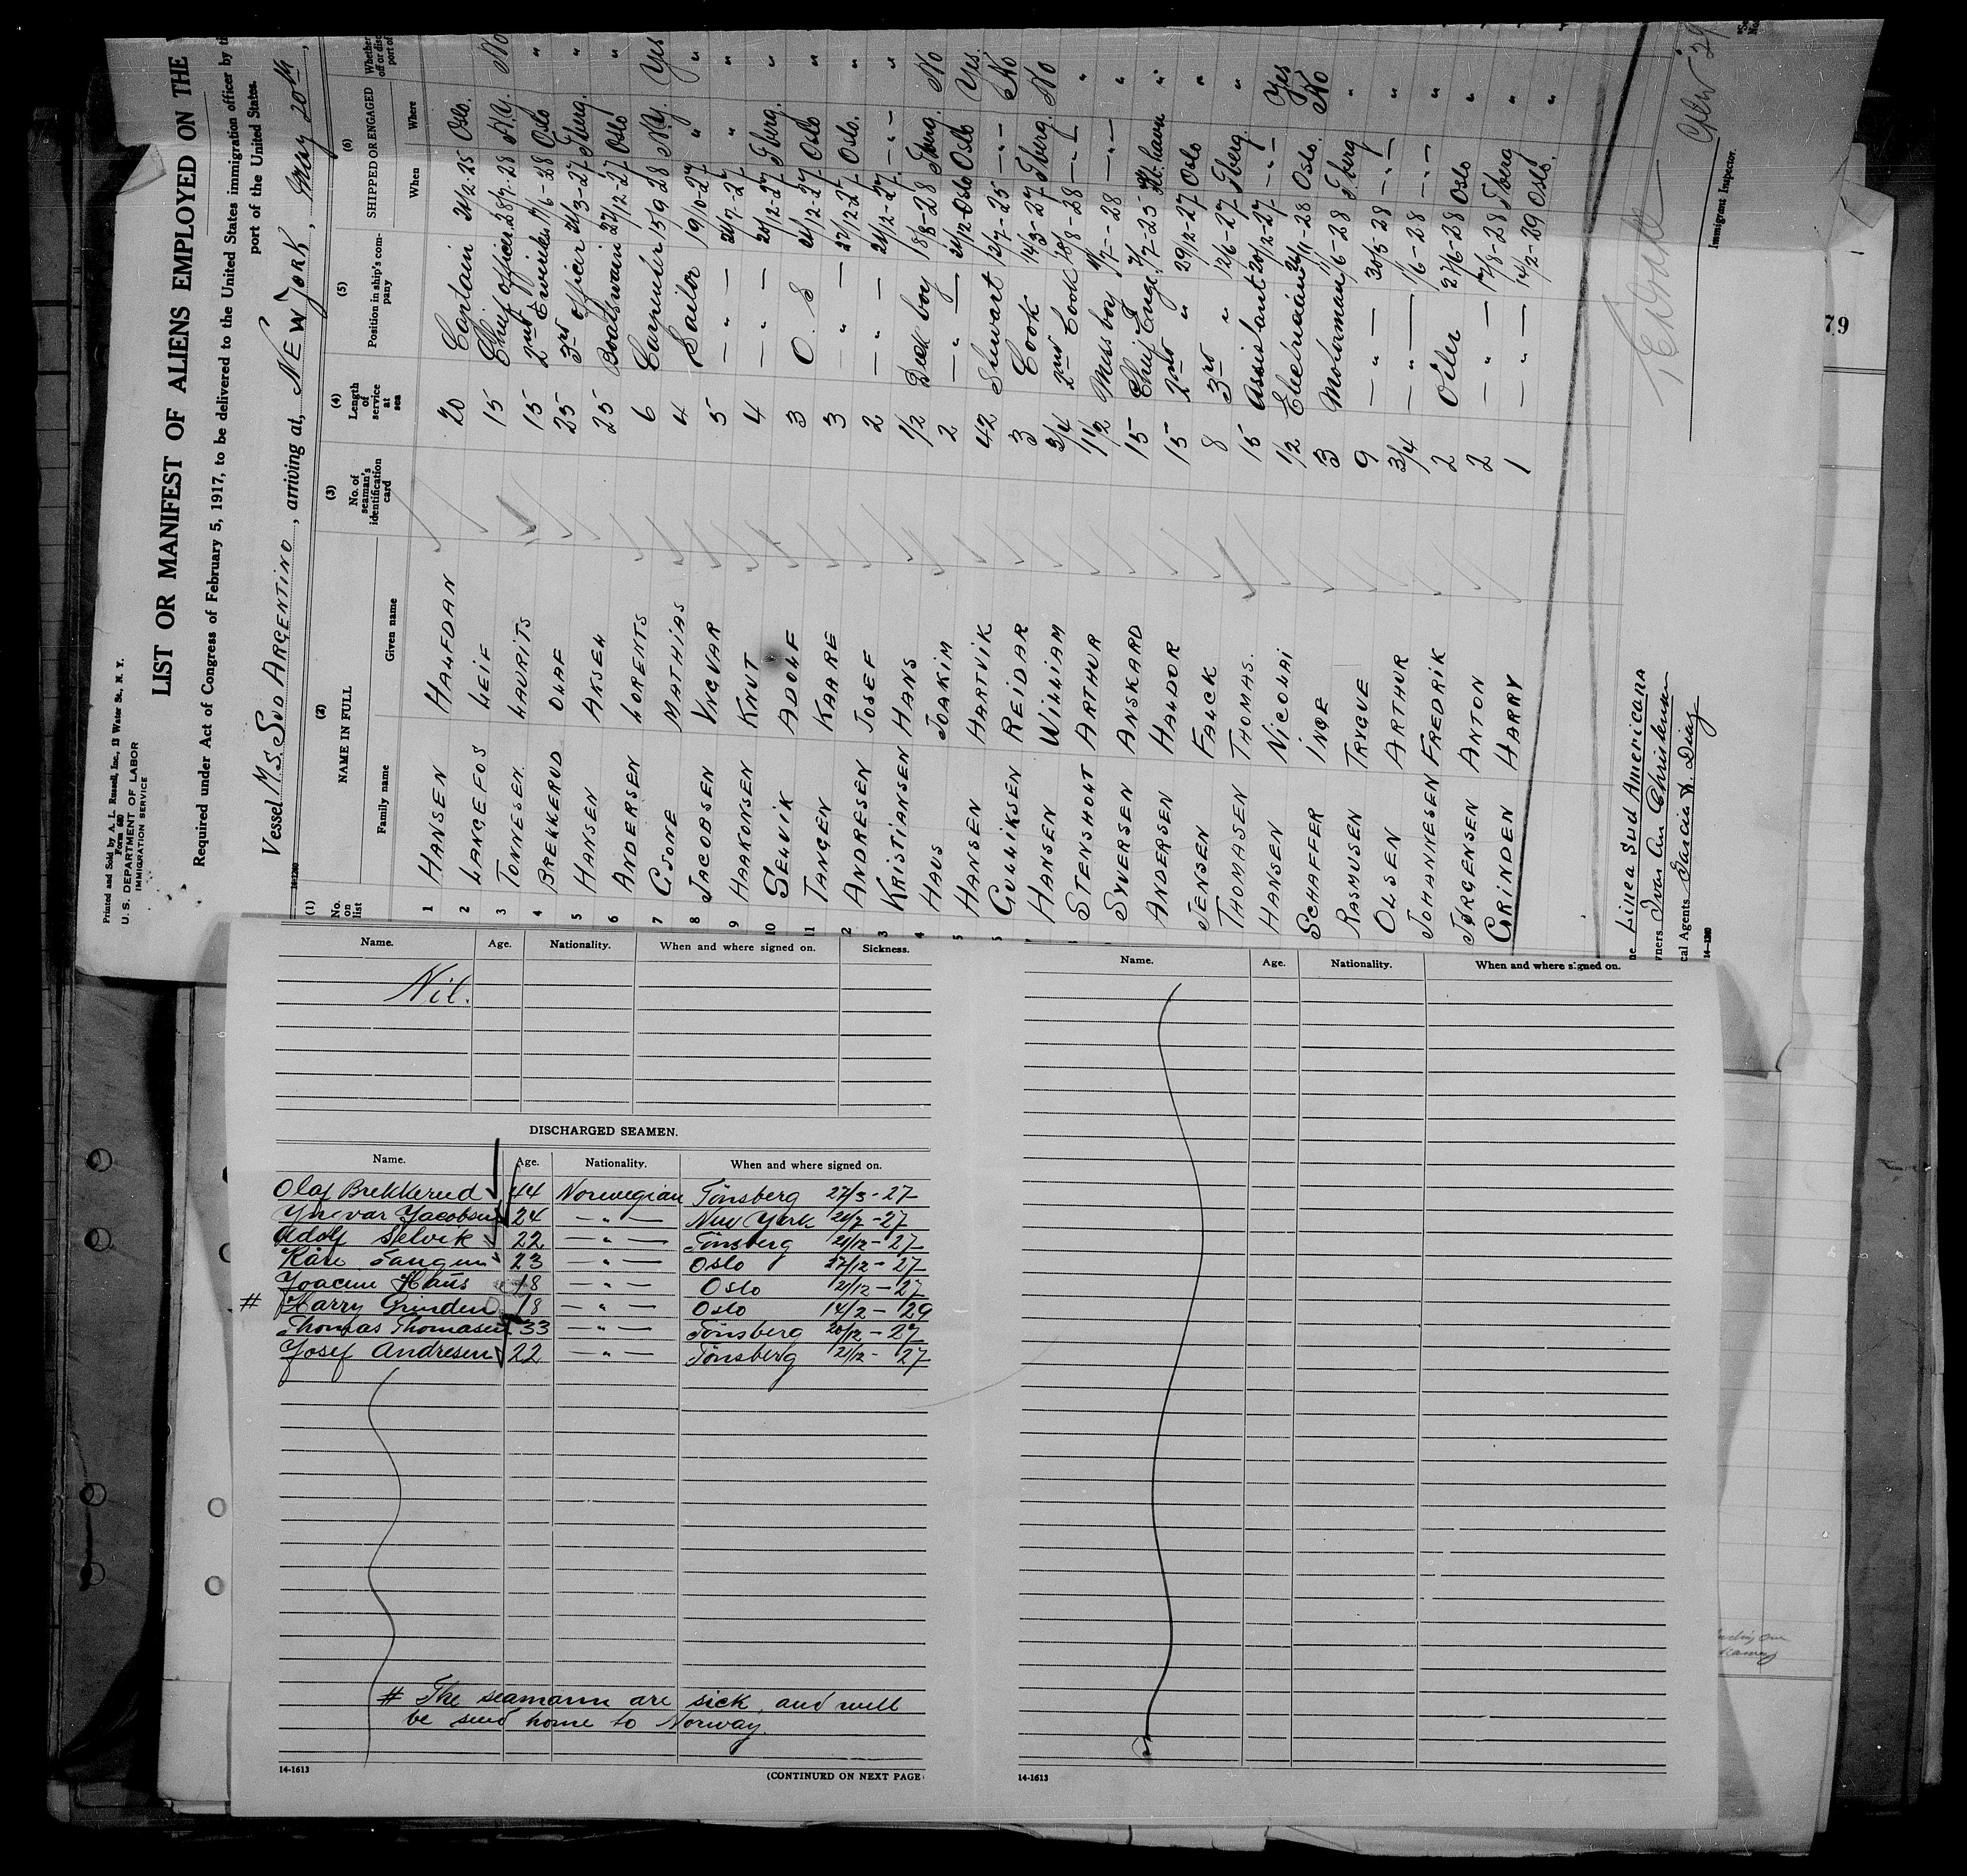 Printed and Sold by A. L. Russell, Inc., 13 Water St., N. Y.
Form 680
U. S. DEPARTMENT OF LABOR
IMMIGRATION SERVICE
LIST OR MANIFEST OF ALIENS EMPLOYED ON THE
Required under Act of Congress of February 5, 1917, to be delivered to the United States immigration officer by
port of the United States.
Vessel M.S. SUD ARGENTINO, arriving at, NEW YORK, May 20th,
(1) (2) (3) (4) (5) (6)
No. on list NAME IN FULL No. of seaman's identification card Length of service at sea Position in ship's company SHIPPED OR ENGAGED
Family name Given name When Where
1 HANSEN HALFDAN 20 Captain 21/2-25 Oslo.
2 LANGEFOS LEIF 15 Chief officer 28/7-28 N.Y. No
3 TONNESEN LAURITS 15 2nd 7/6-28 Oslo "
4 BREKKERUD OLAF 25 3rd officer 21/3-27 Tberg. "
5 HANSEN AKSEL 25 Boatswain 27/12-27 Oslo "
6 ANDERSEN LORENTS 6 Carpenter 15/9 28 N.Y. Yes
7 GJONE MATHIAS 4 Sailor 19/10-27 " "
8 JACOBSEN YNGVAR 5 — " — 21/7-27 " "
9 HAAKONSEN KNUT 4 — " — 20/12-27 Tberg. "
10 SELVIK ADOLF 3 O. S 21/12-27 Oslo "
11 TANGEN KAARE 3 — " — 27/12-27 Oslo. "
2 ANDRESEN JOSEF 2 — " — 21/12-27 — " — "
3 KRISTIANSEN HANS 1/2 Deck boy 18/8-28 Tberg. No
4 HAUS JOAKIM 2 — " — 21/12-Oslo Oslo Yes.
5 HANSEN HARTVIK 42 Stewart 12/7-25 — " — No
GULLIKSEN REIDAR 3 Cook 14/3-27 Tberg. No
HANSEN WILLIAM 3/4 2nd Cook 18/8-28 — " — "
STENSHOLT ARTHUR 1 1/2 Mess boy — " — "
SYVERSEN ANSKARD 15 Chief Eng. "
ANDERSEN HALDOR 15 2nd " 29/12-27 Oslo "
JENSEN FALCK 8 3rd " 12/6-27 Tberg. "
THOMASEN THOMAS. 15 Assistant 20/12-27 — " — Yes
HANSEN NICOLAI 1/2 Electrician Oslo. No
SCHAFFER INGE 3 Motorman 1/6-28 Tberg "
RASMUSEN TRYGUE 9 — " — 30/5 28 — " — "
OLSEN ARTHUR 3/4 — " — 1/6-28 — " — "
JOHANNESEN FREDRIK 2 Oiler 27/6-28 Oslo "
JØRGENSEN ANTON 2 — " — 17/8-28 Tberg "
GRINDEN HARRY 1 — " — 14/2-29 Oslo. "
Linea Sud Americana
wners Ivar An Christensen
cal Agents Garcia & Diaz
14-1240
Immigrant Inspector.
79
Name. Age. Nationality. When and where signed on. Sickness.
Nil.
DISCHARGED SEAMEN.
Name. Age. Nationality. When and where signed on.
Olaf Brekkerud 44 Norwegian Tönsberg 27/3-27
Yngvar Jacobsen 24 — " — New York 21/7-27
Adolf Selvik 22 — " — Tönsberg 21/12-27
Kåre Tangen 23 — " — Oslo 27/12-27
Joacim Haus 18 — " — Oslo 21/12-27
# Harry Grinden 18 — " — Oslo 14/2-29
Thomas Thomasen 33 — " — Tönsberg 20/12-27
Josef Andresen 22 — " — Tönsberg 21/12-27
# The seamann are sick, and will
be send home to Norway.
14-1613
(CONTINUED ON NEXT PAGE
Name. Age. Nationality. When and where signed on.
14-1613